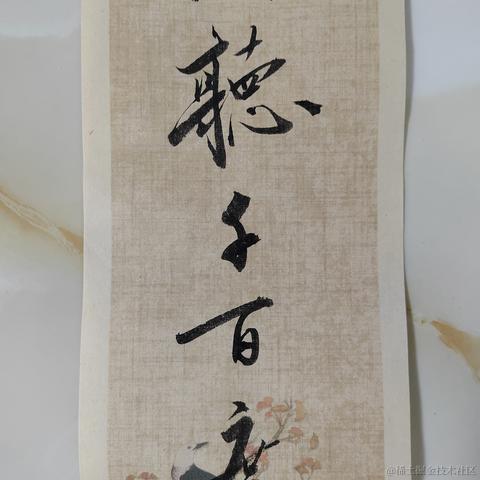 聽千百
@稀土掘金技术社区